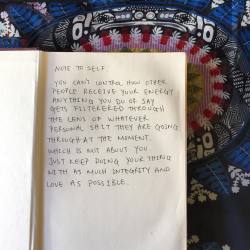 NOTE TO SELF.
YOU CAN'T CONTROL HOW OTHER
PEOPLE RECEIVE YOUR ENERGY
ANYTHING YOU DO OR SAY
GETS FILTERERED THROUGH
THE LENS OF WHATEVER
PERSONAL SHIT THEY ARE GOING
THROUGH AT THE MOMENT.
WHICH IS NOT ABOUT YOU
JUST KEEP DOING YOUR THING
WITH AS MUCH INTEGRITY AND
LOVE AS POSSIBLE.